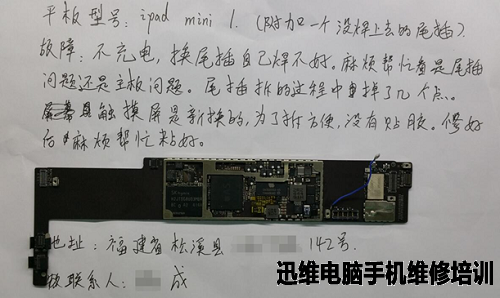 平板型号：ipad mini 1.（附加一个没焊上去的尾插）.
故障：不充电，换尾插自己焊不好。麻烦帮忙看是尾插
问题还是主板问题。尾插拆的过程中掉了几个点。
触摸屏是新换的，为了拆方便，没有贴胶。修好
后麻烦帮忙粘好。
地址：福建省松溪县 142号.
联系人： 成
迅维电脑手机维修培训